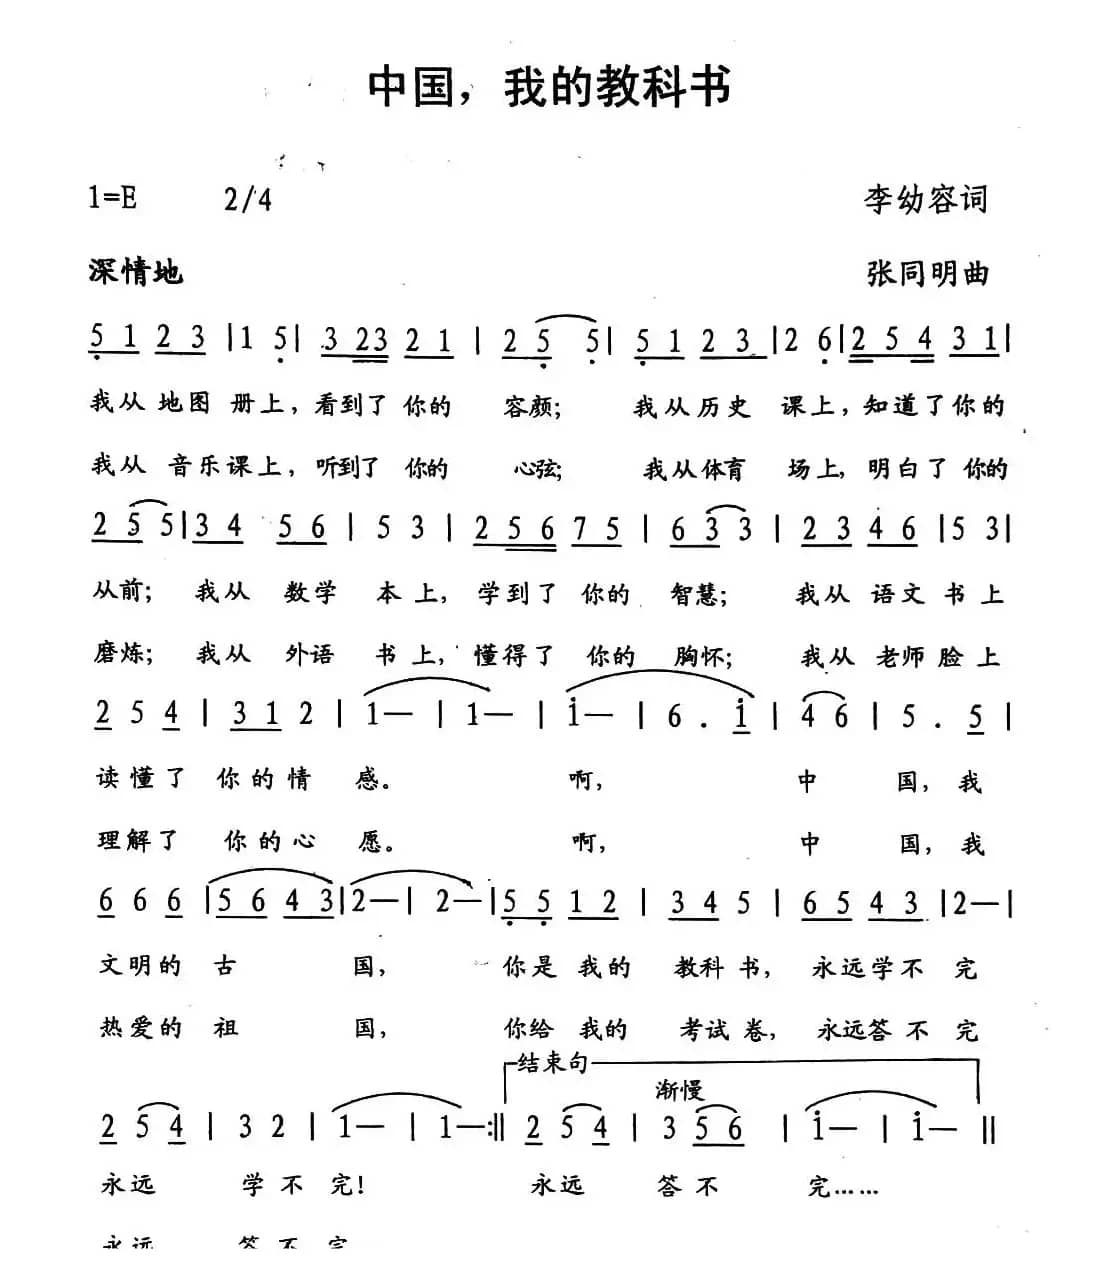 中国，我的教科书
1=E 2/4 李幼容词
深情地 张同明曲
5 1 2 3 | 1 5 | 3 23 2 1 | 2 5 5 | 5 1 2 3 | 2 6 | 2 5 4 3 1 |
我从 地图 册上，看到了 你的 容颜； 我从历史 课上，知道了你的
我从 音乐课上，听到了 你的 心弦； 我从体育 场上，明白了 你的
2 5 5 | 3 4 5 6 | 5 3 | 2 5 6 7 5 | 6 3 3 | 2 3 4 6 | 5 3 |
从前； 我从 数学 本上，学到了 你的 智慧； 我从 语文 书上
磨炼； 我从 外语 书上，懂得了 你的 胸怀； 我从 老师 脸上
2 5 4 | 3 1 2 | 1— | 1— | i— | 6 . i | 4 6 | 5 . 5 |
读懂了 你的情 感。 啊， 中 国，我
理解了 你的心 愿。 啊， 中 国，我
6 6 6 | 5 6 4 3 | 2— | 2— | 5 5 1 2 | 3 4 5 | 6 5 4 3 | 2— |
文明的 古 国， 你是 我的 教科 书， 永远学不 完
热爱的 祖 国， 你给 我的 考试 卷， 永远答不 完
结束句
渐慢
2 5 4 | 3 2 | 1— | 1— :‖ 2 5 4 | 3 5 6 | i— | i— ‖
永远 学不 完！ 永远 答不 完……
永远 答不 完